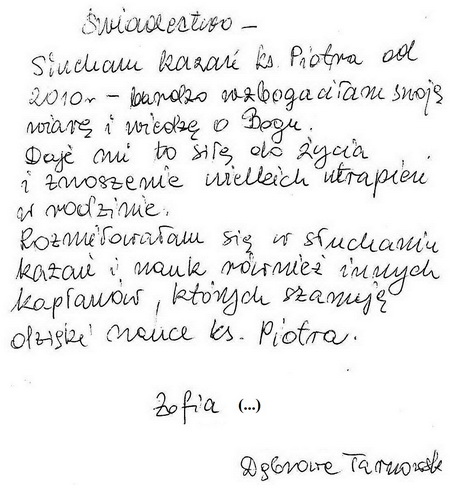 Świadectwo -
Słucham kazań ks. Piotra od
2010r - bardzo wzbogaciłam swoją
wiarę i wiedzę o Bogu.
Daje mi to siłę do życia
i znoszenie wielkich utrapień
w rodzinie.
Rozmiłowałam się w słuchaniu
kazań i nauk również innych
kapłanów, których szanuję
dzięki nauce ks. Piotra.
Zofia (...)
Dąbrowa Tarnowska